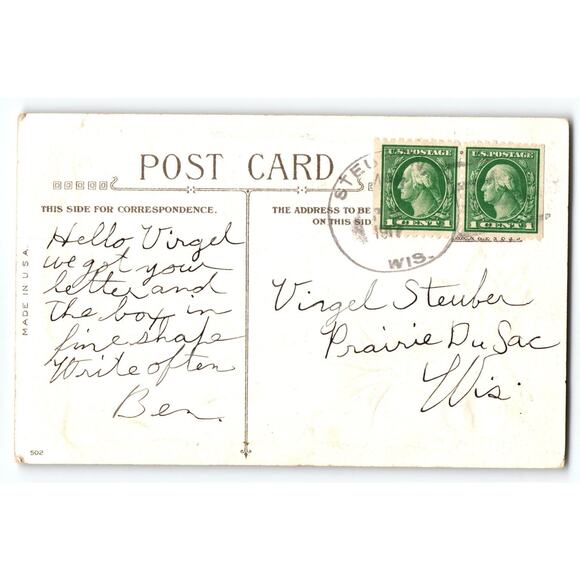 POST CARD
THIS SIDE FOR CORRESPONDENCE.
THE ADDRESS TO BE
ON THIS SID
MADE IN U.S.A.
Hello Virgel
we got your
letter and
the box in
fine shape
Write often
Ben.
502
U.S. POSTAGE
1 CENT 1
U.S. POSTAGE
1 CENT 1
STEU
WIS.
Virgel Steuber
Prairie Du Sac
Wis.